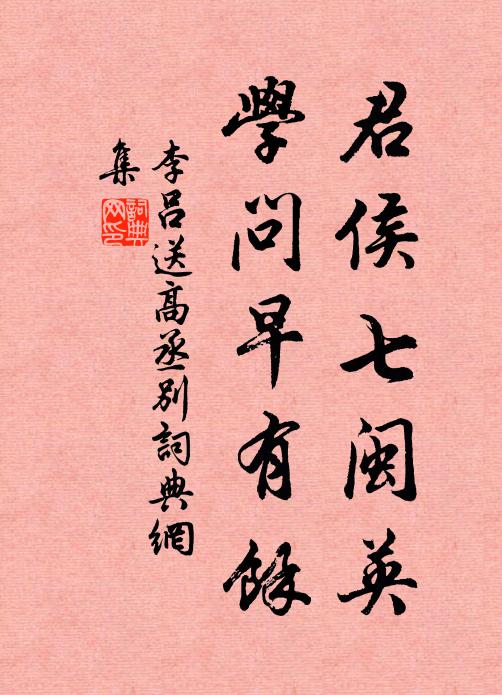 君侯七闽英
學問早有餘
李呂送高丞别詞典網
集
詞典网印